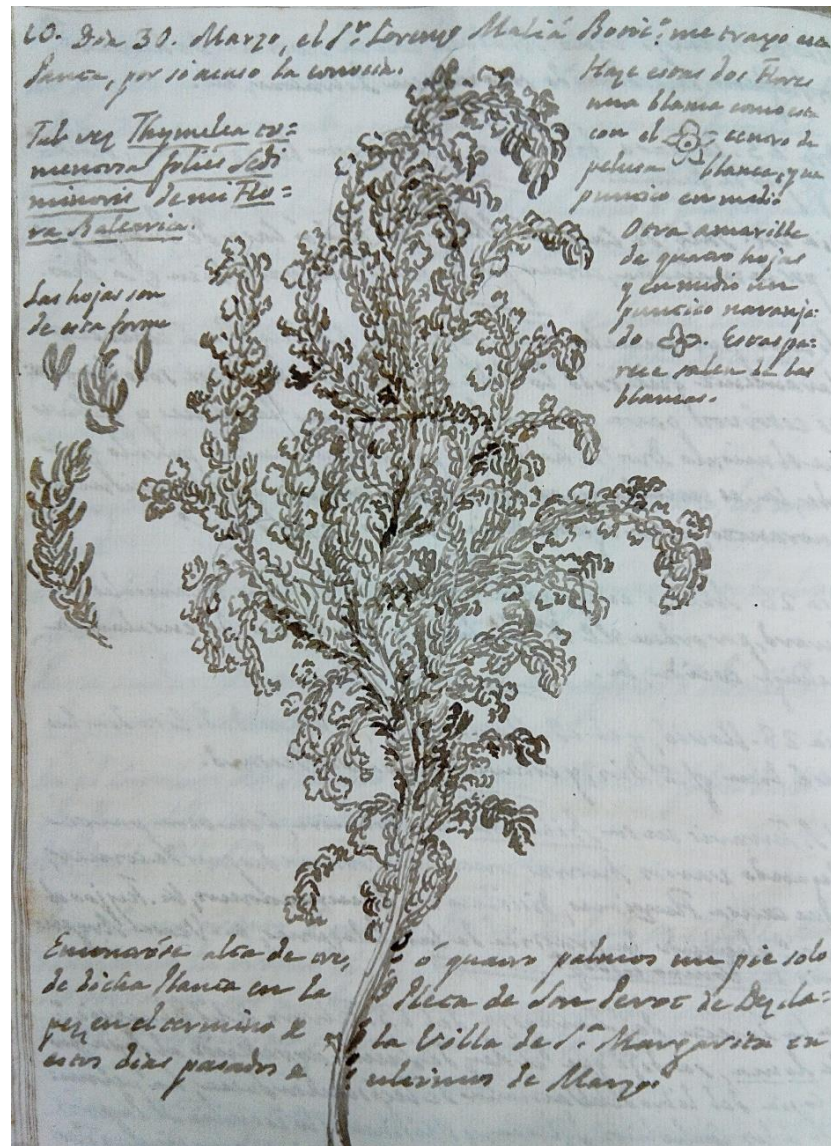 10. Dia 30. Marzo, el S.r Lorenzo Maliá Bonit.o me trayo una
Planta, por si acaso la conocia.
Tal vez Thymelea to=
mentosa foliis Sedi
minoris de mi Flo=
ra Balearica.
Las hojas son
de esta forma
Haze estas dos Flores
una blanca como esta
con el centro de
pelusa blanca, y un
puntito en medio
Otra amarilla
de quatro hojas
y en medio un
puntito naranja:
do. Estas pa:
rece salen de las
blancas.
Encontróse alta de tre, ó quatro palmos un pie solo
de dicha Planta en la Pleta de Son Perrot de Dezla=
pez, en el termino de la Villa de S.ta Margarita en
estos dias pasados a ultimos de Marzo.